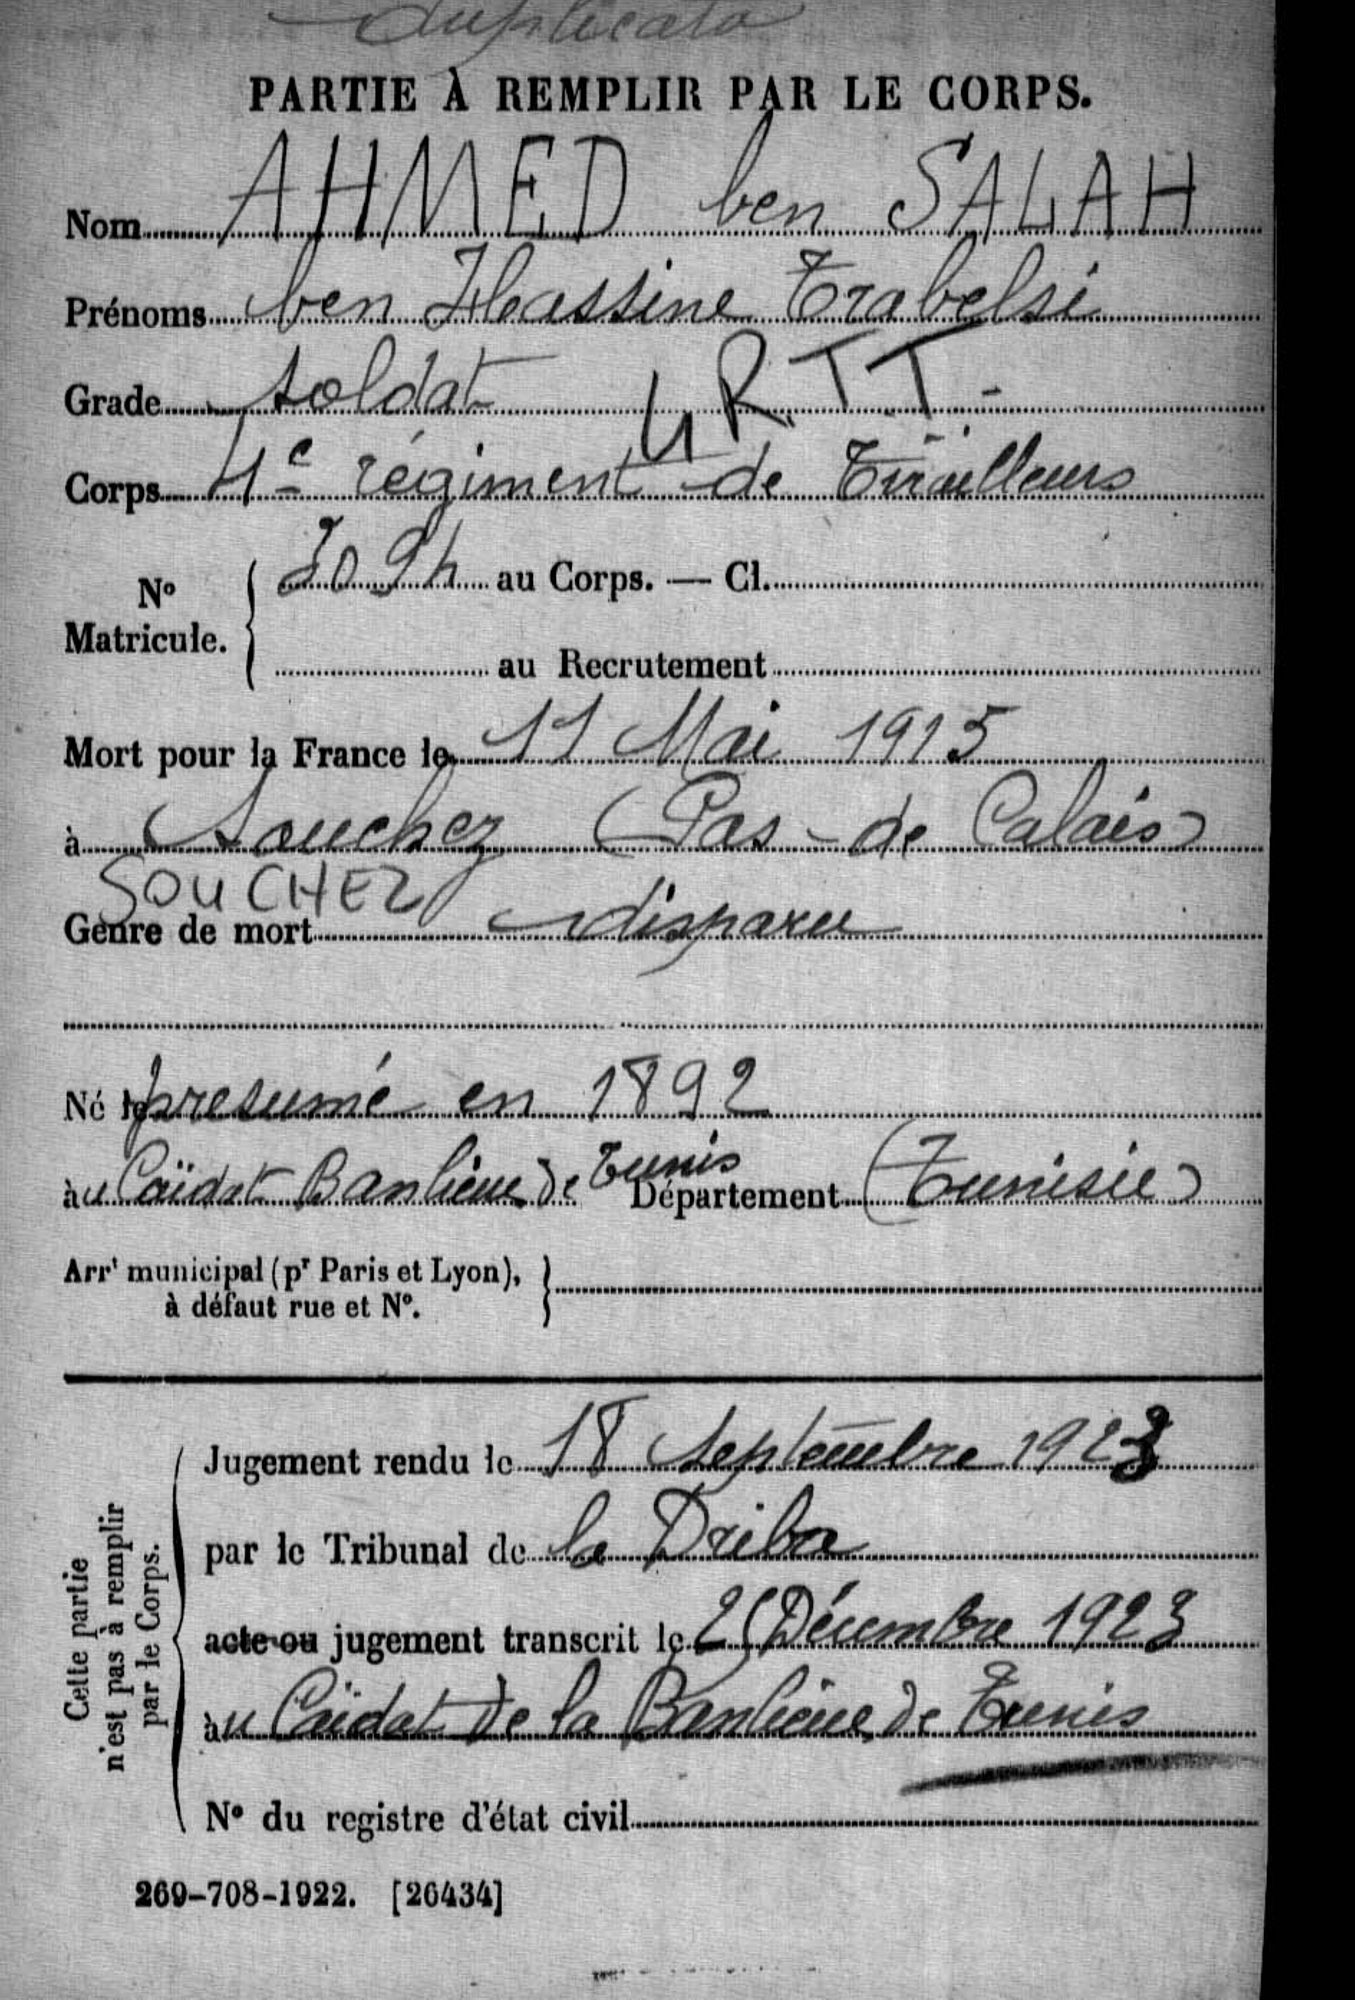 duplicata
PARTIE À REMPLIR PAR LE CORPS.
Nom AHMED ben SALAH
Prénoms ben Hassine Trabelsi
Grade soldat 4 R.T.T.-
Corps 4e régiment de Tirailleurs
N° Matricule. { au Corps. — Cl.
au Recrutement
Mort pour la France le 11 Mai 1915
à Souchez (Pas-de Calais)
SOUCHEZ
Genre de mort disparu
Né le presumé en 1892
àu Caïdat Banlieue de Tunis Département (Tunisie)
Arrt municipal (pr Paris et Lyon),
à défaut rue et N°.
Cette partie n'est pas à remplir par le Corps.
Jugement rendu le 18 Septembre 1923
par le Tribunal de la Driba
acte ou jugement transcrit le Décembre 1923
àu Caïdat de la Banlieue de Tunis
N° du registre d'état civil
269-708-1922. [26434]